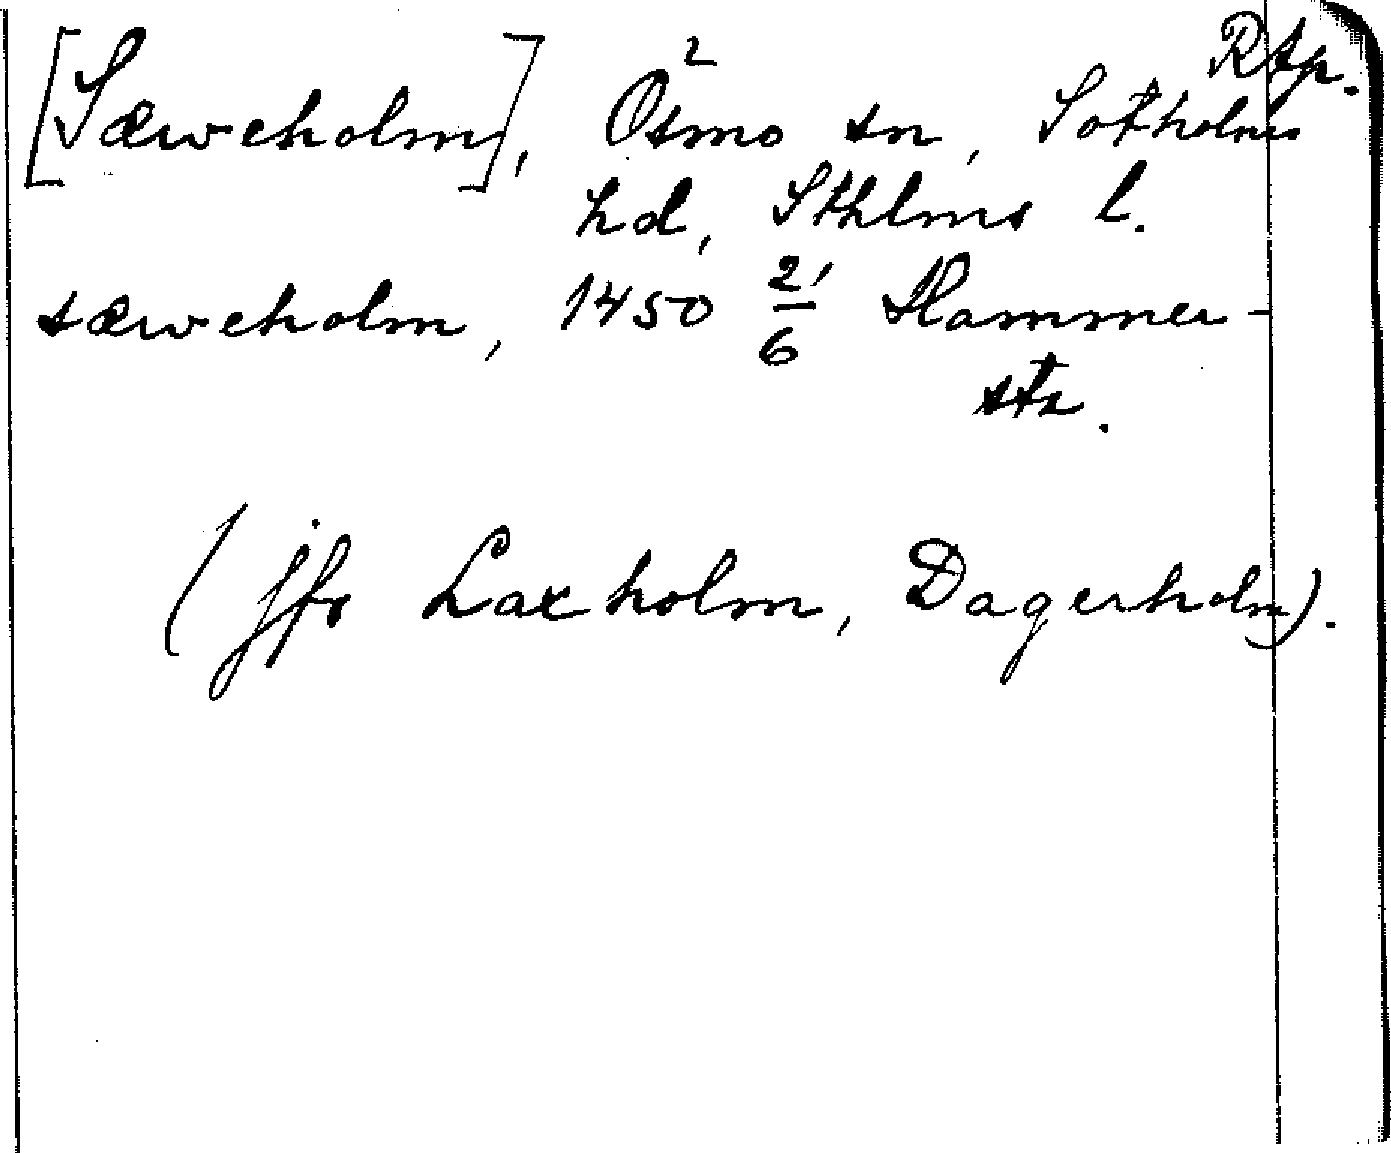 Rtp.
[Sæweholm], Ösmo sn, Sotholms
hd, Sthlms l.
sæweholm, 1450 21/6 Hammer-
sta.
(jfr Laxholm, Dagerholm).